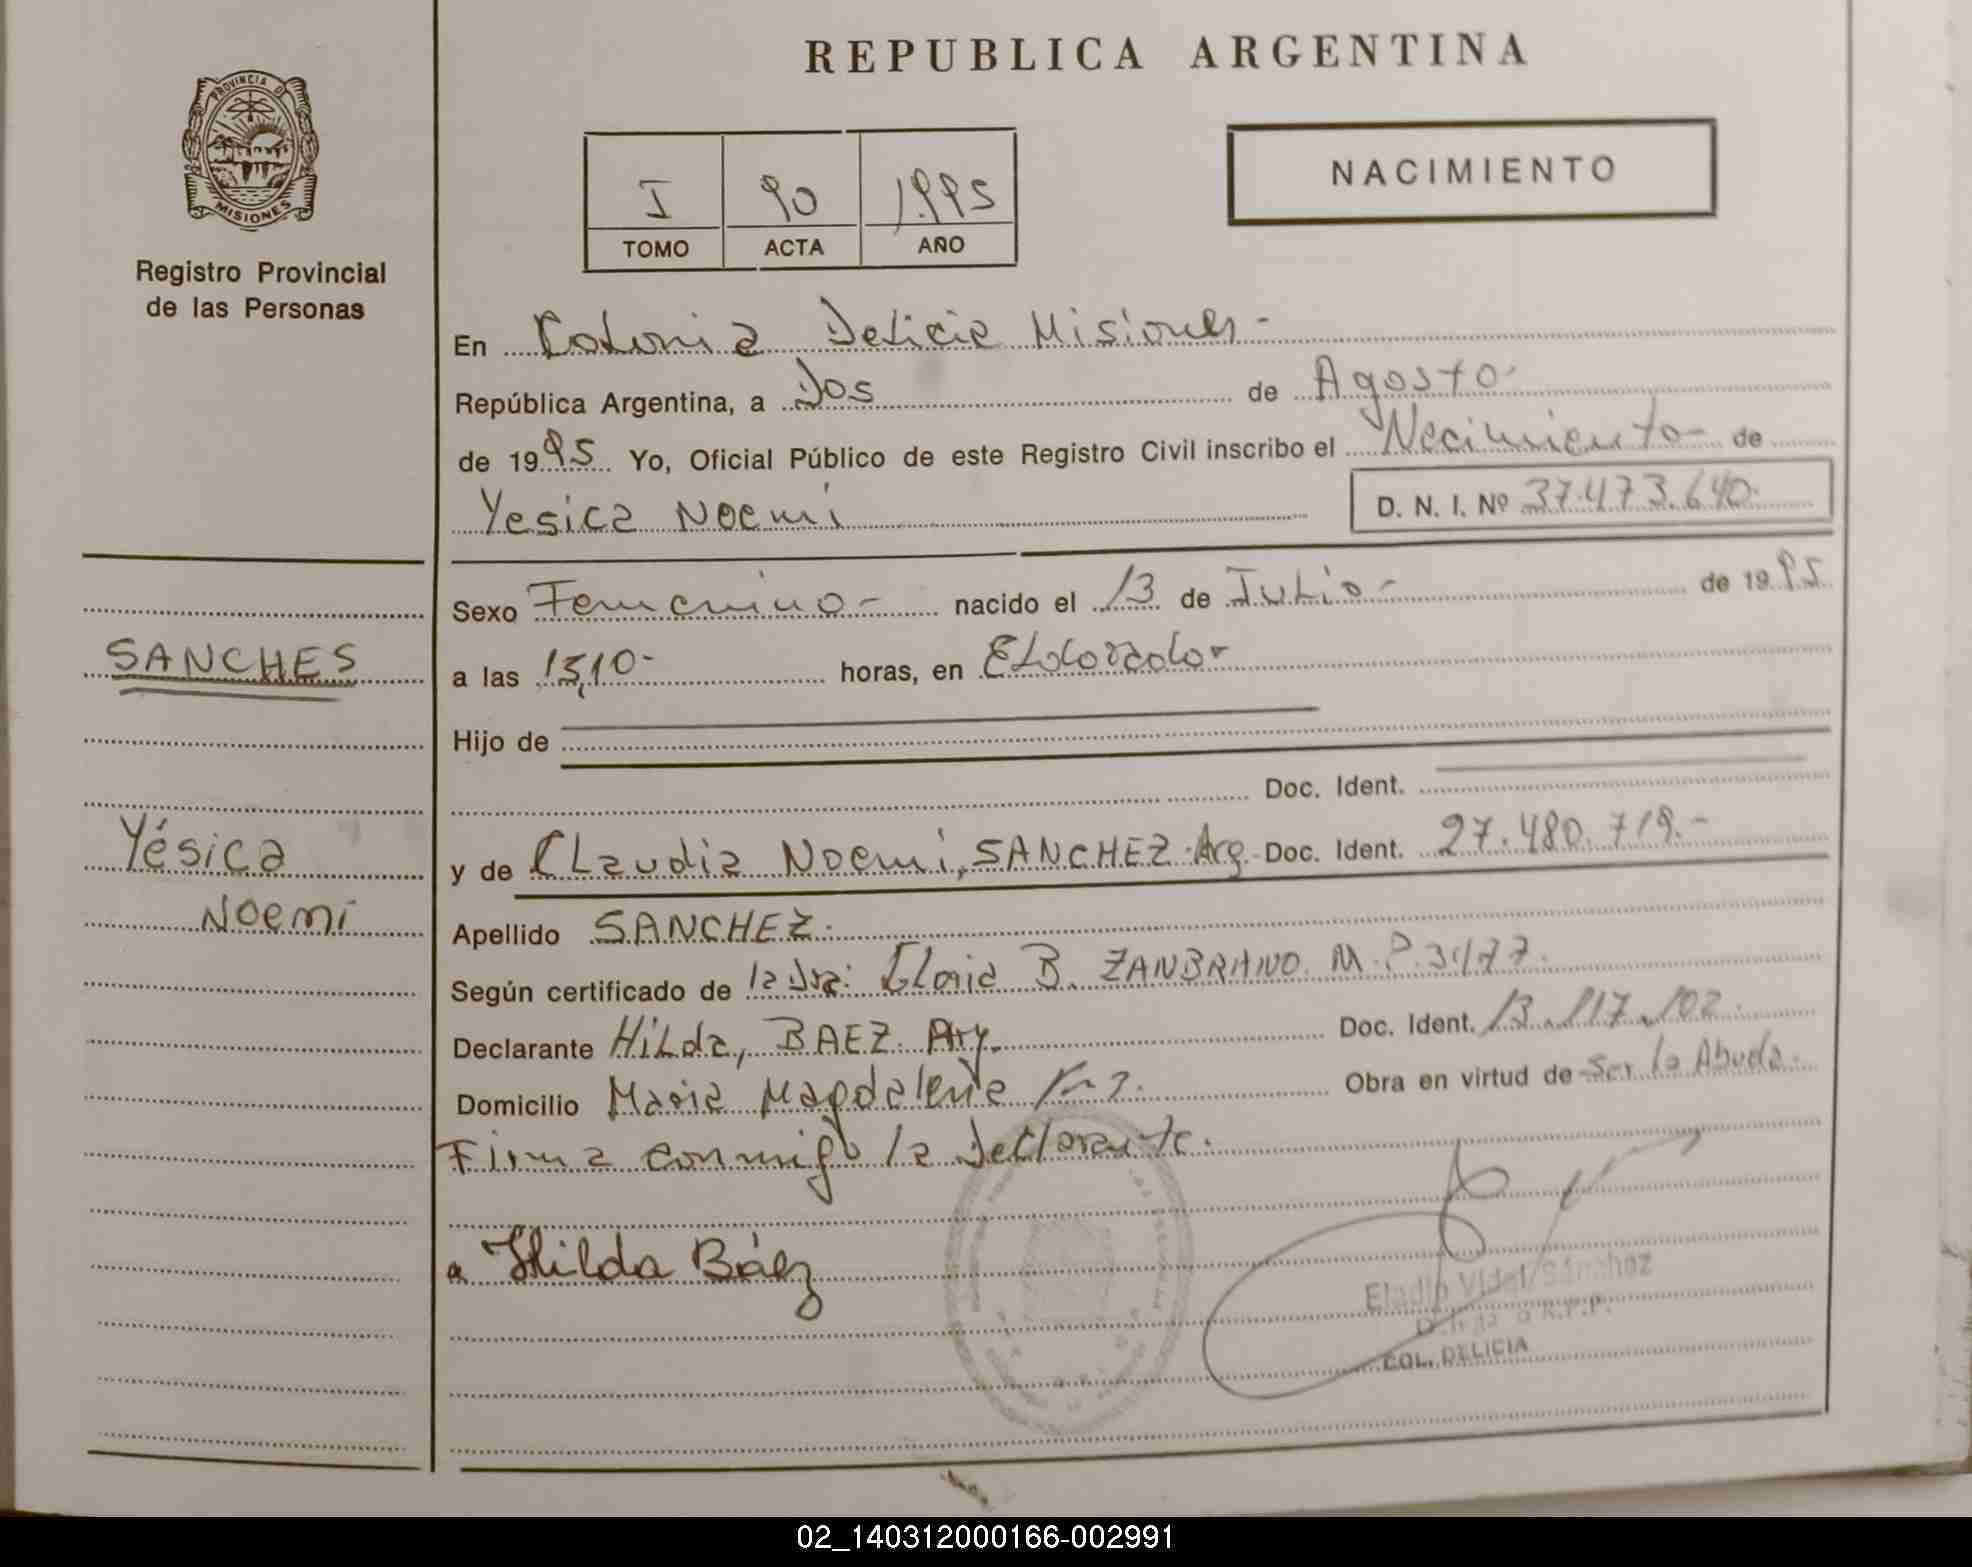 REPUBLICA ARGENTINA
PROVINCIA D
MISIONES
Registro Provincial
de las Personas
I 90 1995
TOMO ACTA AÑO
NACIMIENTO
En Colonia Delicia Misiones-
República Argentina, a Dos de Agosto-
de 1995 Yo, Oficial Público de este Registro Civil inscribo el Necimiento- de
Yesica Noemi D. N. I. Nº 37.473.640.
Sexo Femenino- nacido el 13 de Julio- de 1995
SANCHES
a las 15,10- horas, en Eldorado-
Hijo de
Doc. Ident.
Yésica
Noemí
y de Claudia Noemi, SANCHEZ Arg. Doc. Ident. 27.480.719.-
Apellido SANCHEZ.
Según certificado de la Dra: B. ZANBRANO M.P.
Declarante Hilda, BAEZ. Arg. Doc. Ident. 13.117.102.
Domicilio Maria Magdalena Obra en virtud de Ser la Abuela.
Firma conmigo la Declarante.
a Hilda Báez
Eladio Vidal Sánchez
R.P.P.
COL. DELICIA
02_140312000166-002991